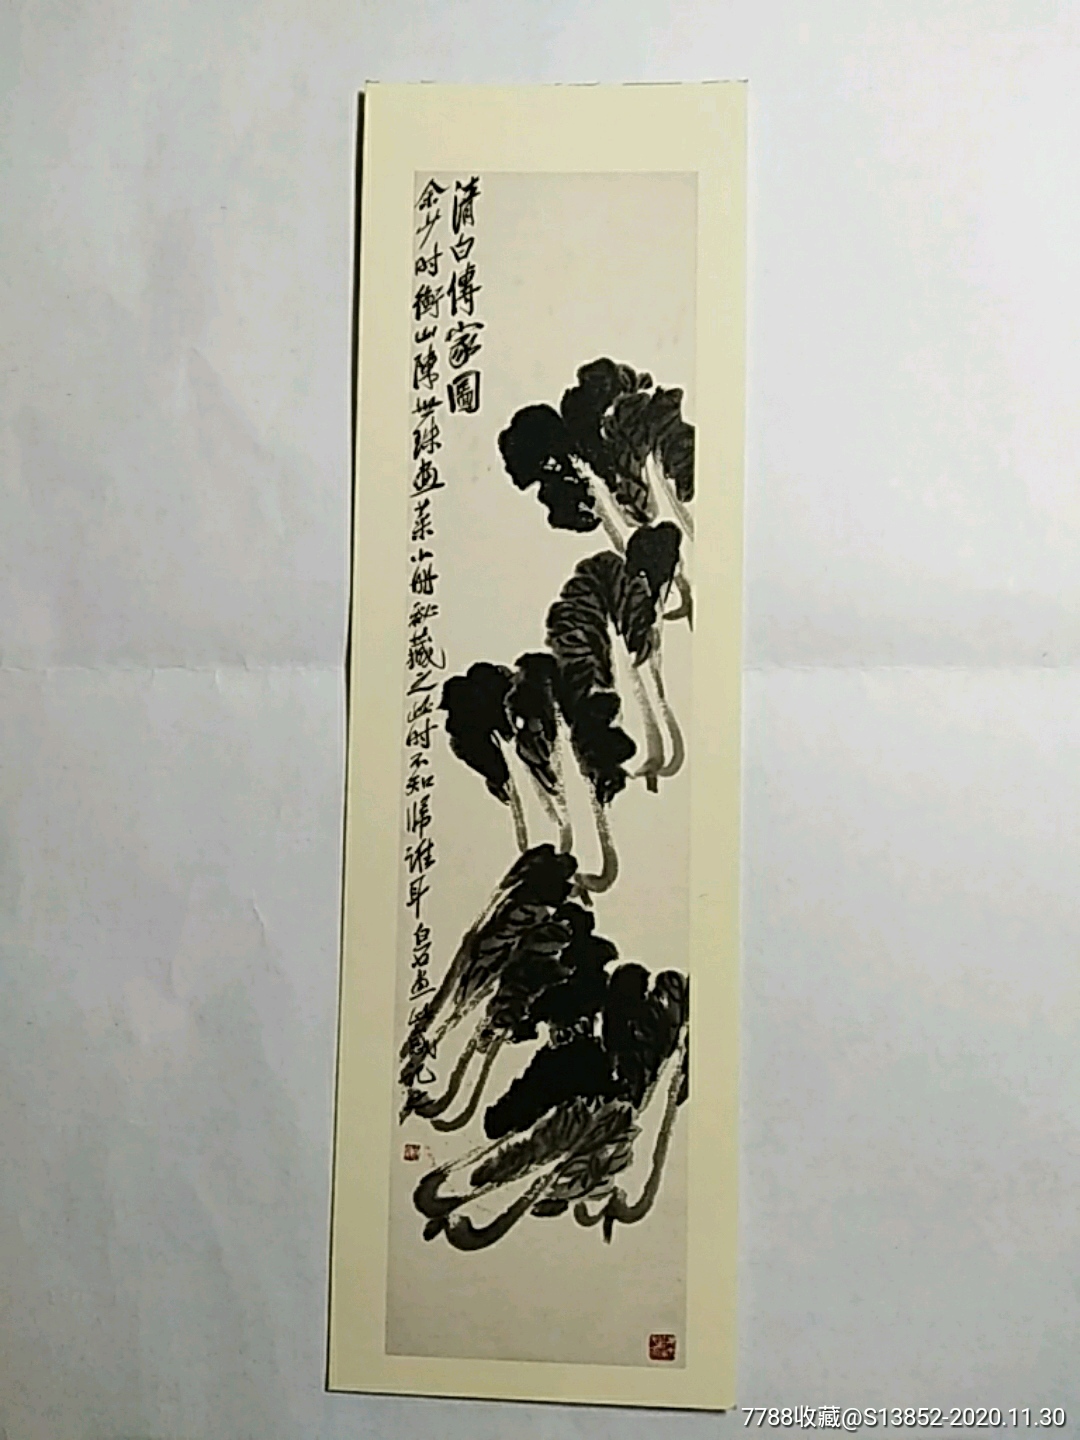 清白傳家圖
余少时衡山陳世珠畫菜小册秘藏之此时不知歸誰耳白石畫此感記之
7788收藏@S13852-2020.11.30